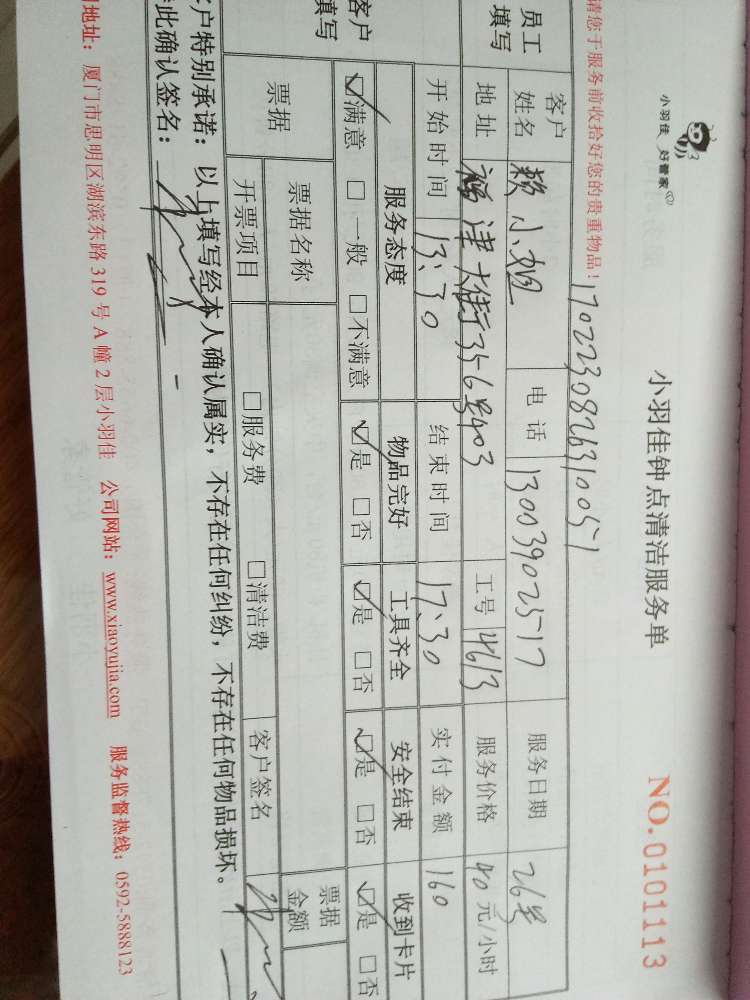 小羽佳 好管家
小羽佳钟点清洁服务单
NO.0101113
请您于服务前收拾好您的贵重物品！
1702230826310051
员工填写
客户姓名 赖小姐 电话 13003902517 服务日期 26号
地址 福津大街356号403 工号 4613 服务价格 40元/小时
开始时间 13:30 结束时间 17:30 实付金额 160
客户填写
服务态度 物品完好 工具齐全 安全结束 收到卡片
☑满意 □一般 □不满意 ☑是 □否 ☑是 □否 ☑是 □否 ☑是 □否
票据 票据名称 票据金额
开票项目 □服务费 □清洁费 客户签名
客户特别承诺：以上填写经本人确认属实，不存在任何纠纷，不存在任何物品损坏。
此确认签名：
地址：厦门市思明区湖滨东路319号A幢2层小羽佳 公司网站：www.xiaoyujia.com 服务监督热线：0592-5888123